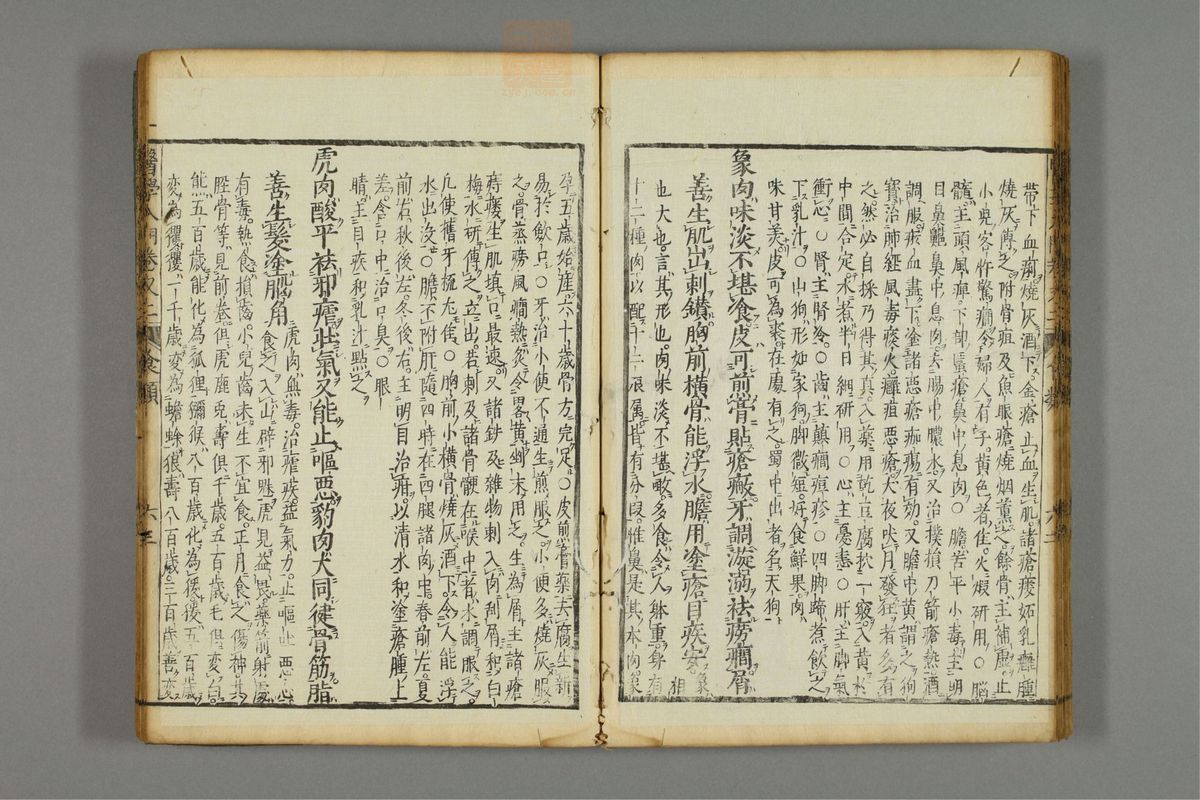 帶下血崩燒灰酒下金瘡止血生肌諸瘡瘻妬乳癰腫
燒灰傅之附骨疽及魚眼瘡燒烟薰之餘骨主補虛止
小兒客忤驚癇令婦人有子黃色者佳火煅研用○腦
髓主頭風痺下部䘌瘡鼻中息肉○膽苦平小毒主明
目鼻齆鼻中息肉去腸中膿水又治撲損刀箭瘡熱酒
調服瘀血盡下塗諸惡瘡痂瘍有効又膽中黃謂之狗
寶治肺經風毒痰火癰疽惡瘡犬夜吠月發狂者多有
之然必自採乃得其真入藥用乾豆腐挖一竅入黃於
中間合定水煮半日細研用○心主憂恚○肝主脚氣
衝心○腎主腎冷○齒主癲癇痘疹○四脚蹄煮飲之
下乳汁○山狗形如家狗脚微短好食鮮果肉
味甘美皮可為裘在處有之蜀中出者名天狗
象肉味淡不堪食皮可煎膏貼瘡敝牙調溺祛癆癇屑
善生肌出刺鑽胸前橫骨能浮水膽用塗瘡目疾安
象
也大也言其形也肉味淡不堪啖多食令人躰重身有
十二種肉以配十二辰属皆有分段惟鼻是其本肉象
孕五歲始產六十歲骨方完足○皮煎膏藥去腐生新
易於飲口○牙治小便不通生煎服之小便多燒灰服
之骨蒸癆風癇熱炙令畧黃剉末用之生為屑主諸瘡
痔瘻生肌填口最速又諸鉄及雜物刺入肉刮屑和白
梅水研傅之立出若刺及諸骨骾在喉中者水調服之
凡使舊牙梳尤佳○胸前小橫骨燒灰酒下令人能浮
水出沒○膽不附肝而四時在四腿諸肉中春前左夏
前右秋後左冬後右主明目治疳以清水和塗瘡腫上
差含口中治口臭○眼
睛主目疾和乳汁點之
虎肉酸平祛邪瘧壯氣又能止嘔惡豹肉犬同健骨筋脂
善生髮塗肌角
虎肉無毒治瘧疾益氣力止嘔止惡心
食之入山辟邪魅虎見益畏藥箭射處
有毒熱食損齒小兒齒未生不宜食正月食之傷神其
脛骨等見前卷但虎鹿兎壽俱千歲五百歲毛俱變白
能五百歲能化為狐狸獼猴八百歲化為猨猨五百歲
變為玃玃一千歲變為蟾蜍狼壽八百歲三百歲善變